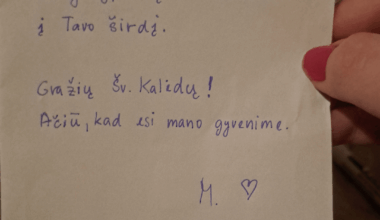 į Tavo širdį.
Gražių Šv. Kalėdų!
Ačiū, kad esi mano gyvenime.
M. ♡